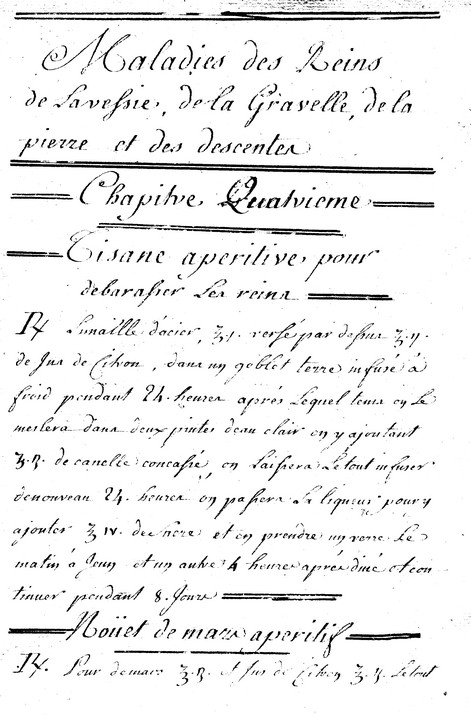 Maladies des Reins
de Lavessie, de la Gravelle, de la
pierre et des descentes
Chapitre Quatrieme
Tisane aperitive pour
debarasser Les reins
R/ Limaille d'acier, ʒ.j. versé par dessus ʒ.ij.
de Jus de Citron, dans un goblet terre infusé à
froid pendant 24. heures aprés Lequel tems on Le
meslera dans deux pintes d'eau clair en y ajoutant
ʒ.ß. de canelle concassé, on Laissera Le tout infuser
denouveau 24. heures on passera La liqueur pour y
ajouter ʒ iv. de sucre et en prendre un verre Le
matin à Jeun et un autre 4 heures aprés diné et con
tinuer pendant 8. Jours
Noüet de mars aperitif
R/. Pour de mars ʒ.ß. et Jus de Citron ʒ.ß. Le tout